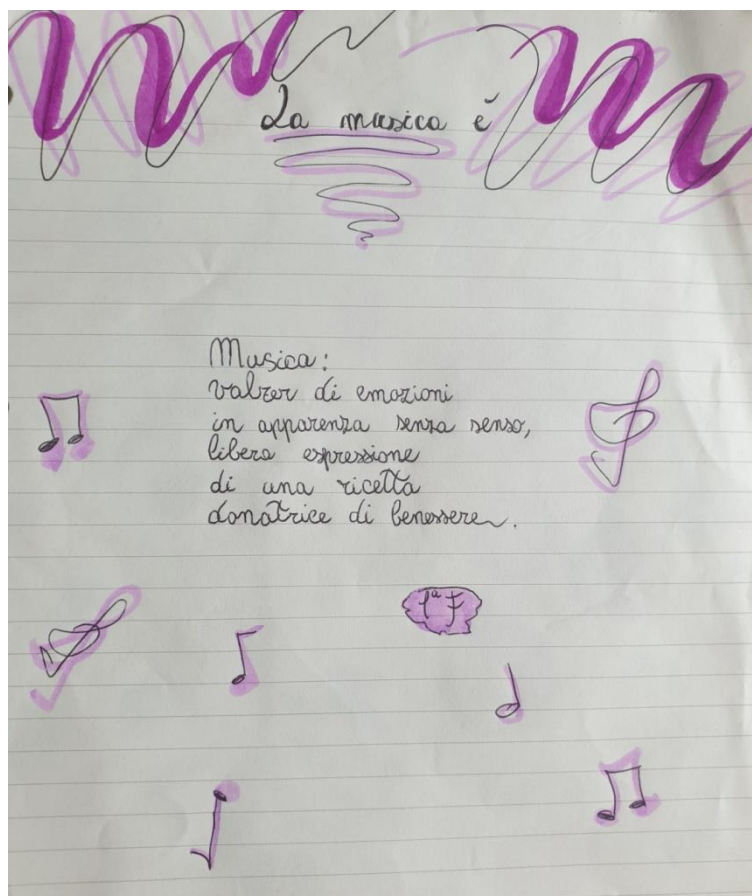 La musica è
Musica:
valzer di emozioni
in apparenza senza senso,
libera espressione
di una ricetta
donatrice di benessere.
1ª F